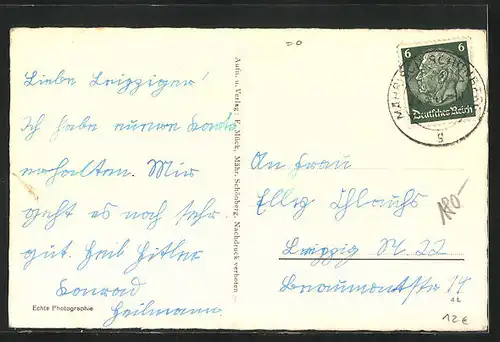 Liebe Leipziger!
Ich habe euere Karte
erhalten. Mir
geht es noch sehr
gut. Heil Hitler
Konrad
Heilmann.
Echte Photographie
Aufn. u. Verlag F. Mück, Mähr. Schönberg. Nachdruck verboten
6 6
Deutsches Reich
g
An Frau
Elly
Leipzig N. 22
Beaumontstr 14
180-
12€